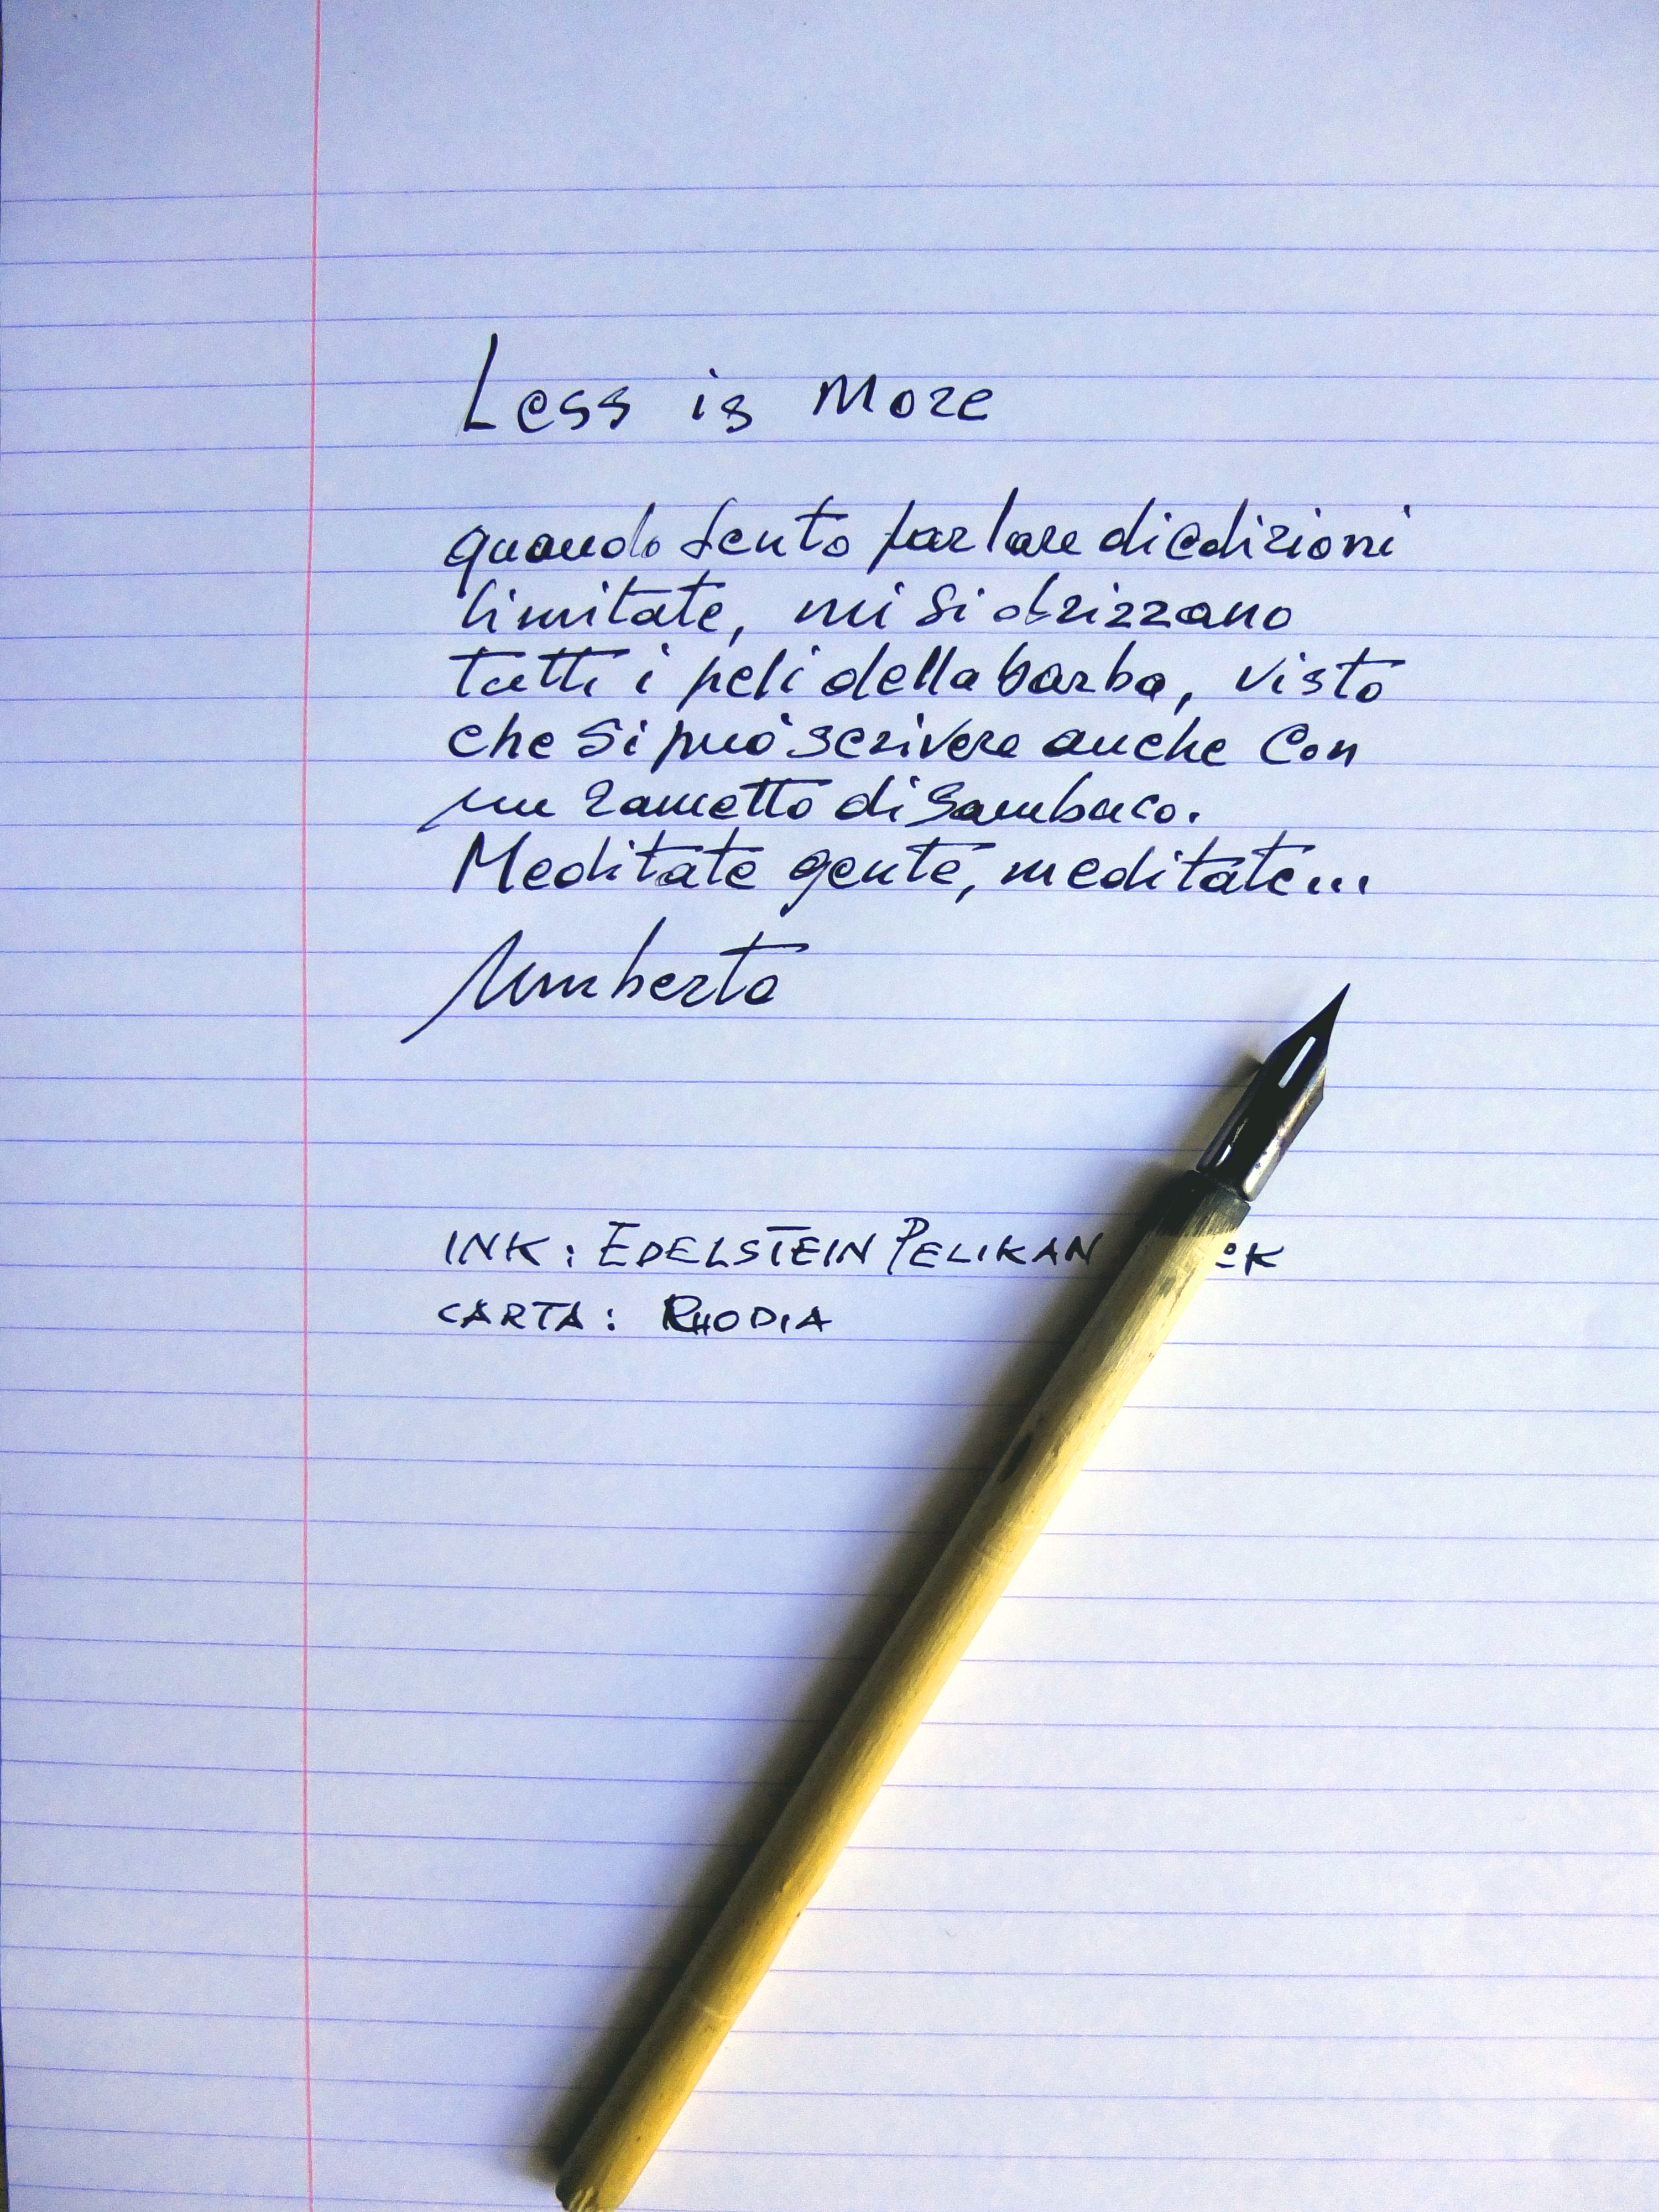 Less is More
quando sento parlare di edizioni
limitate, mi si drizzano
tutti i peli della barba, visto
che si può scrivere anche con
un rametto di Sambuco.
Meditate gente, meditate...
Umberto
INK: EDELSTEIN PELIKAN
CARTA: RHODIA